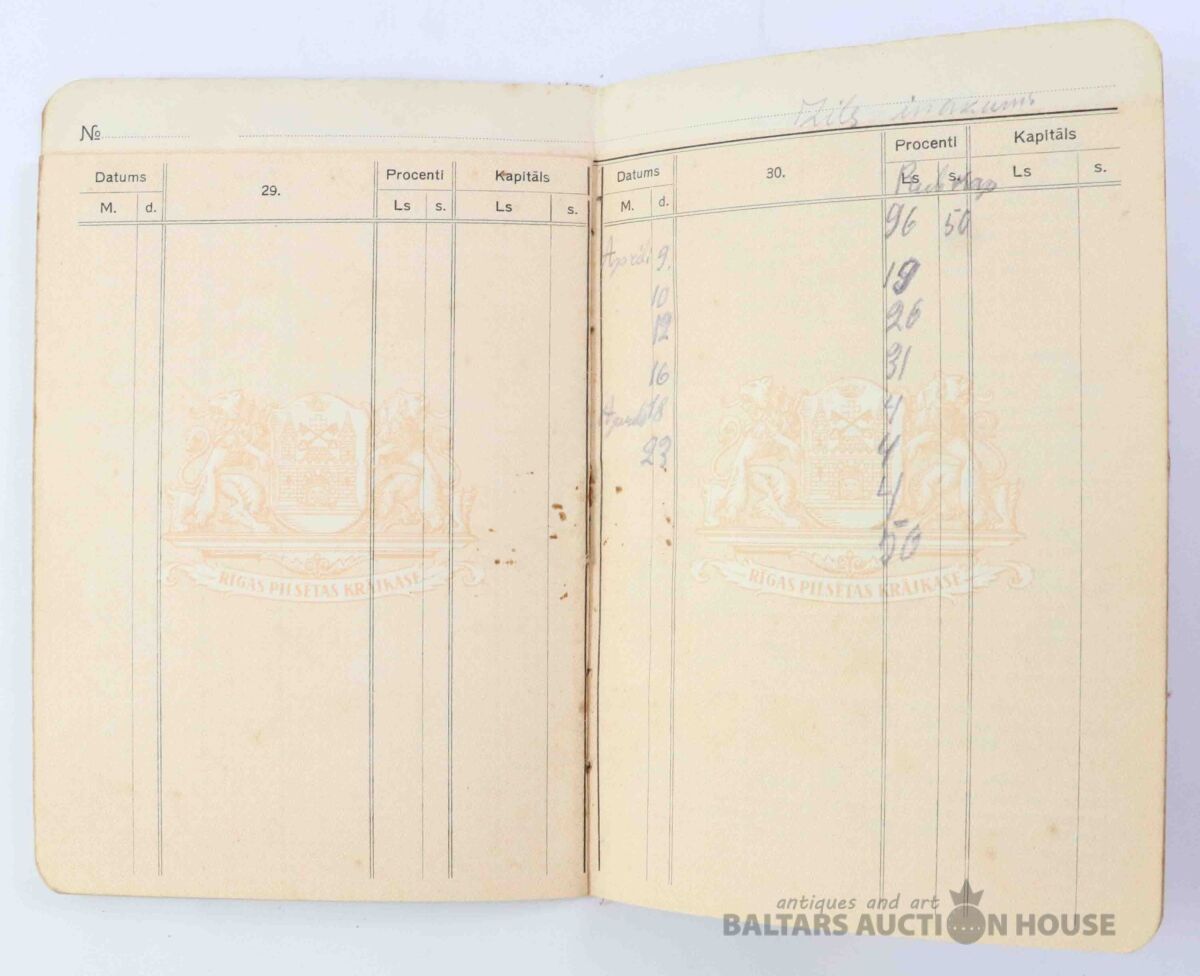 №
Datums 29. Procenti Kapitāls
M. d. Ls s. Ls s.
RIGAS PILSĒTAS KRĀJKASE
Datums 30. Procenti Kapitāls
M. d. Ls s. Ls s.
96 50
9.
10 19
12 26
16 31
18 4
23 4
4
50
RIGAS PILSĒTAS KRĀJKASE
antiques and art
BALTARS AUCTION HOUSE